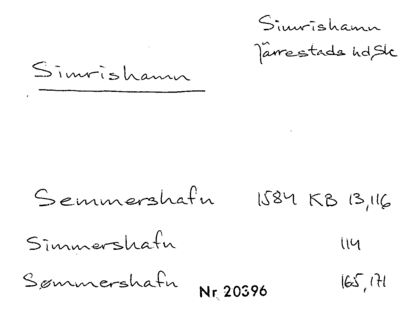 Simrishamn
Järrestads hd, Sk
Simrishamn
Semmershafn 1584 KB 13,116
Simmershafn 114
Sømmershafn 165,171
Nr 20396